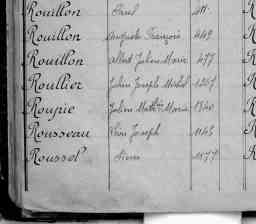 Rouillon Paul 411
Rouillon Auguste François 449
Rouillon Albert Julien Marie 477
Roullier Julien Joseph Michel 1267
Roupie Julien Math. Marie 1340
Rousseau Léon Joseph 1143
Roussel Pierre 1177